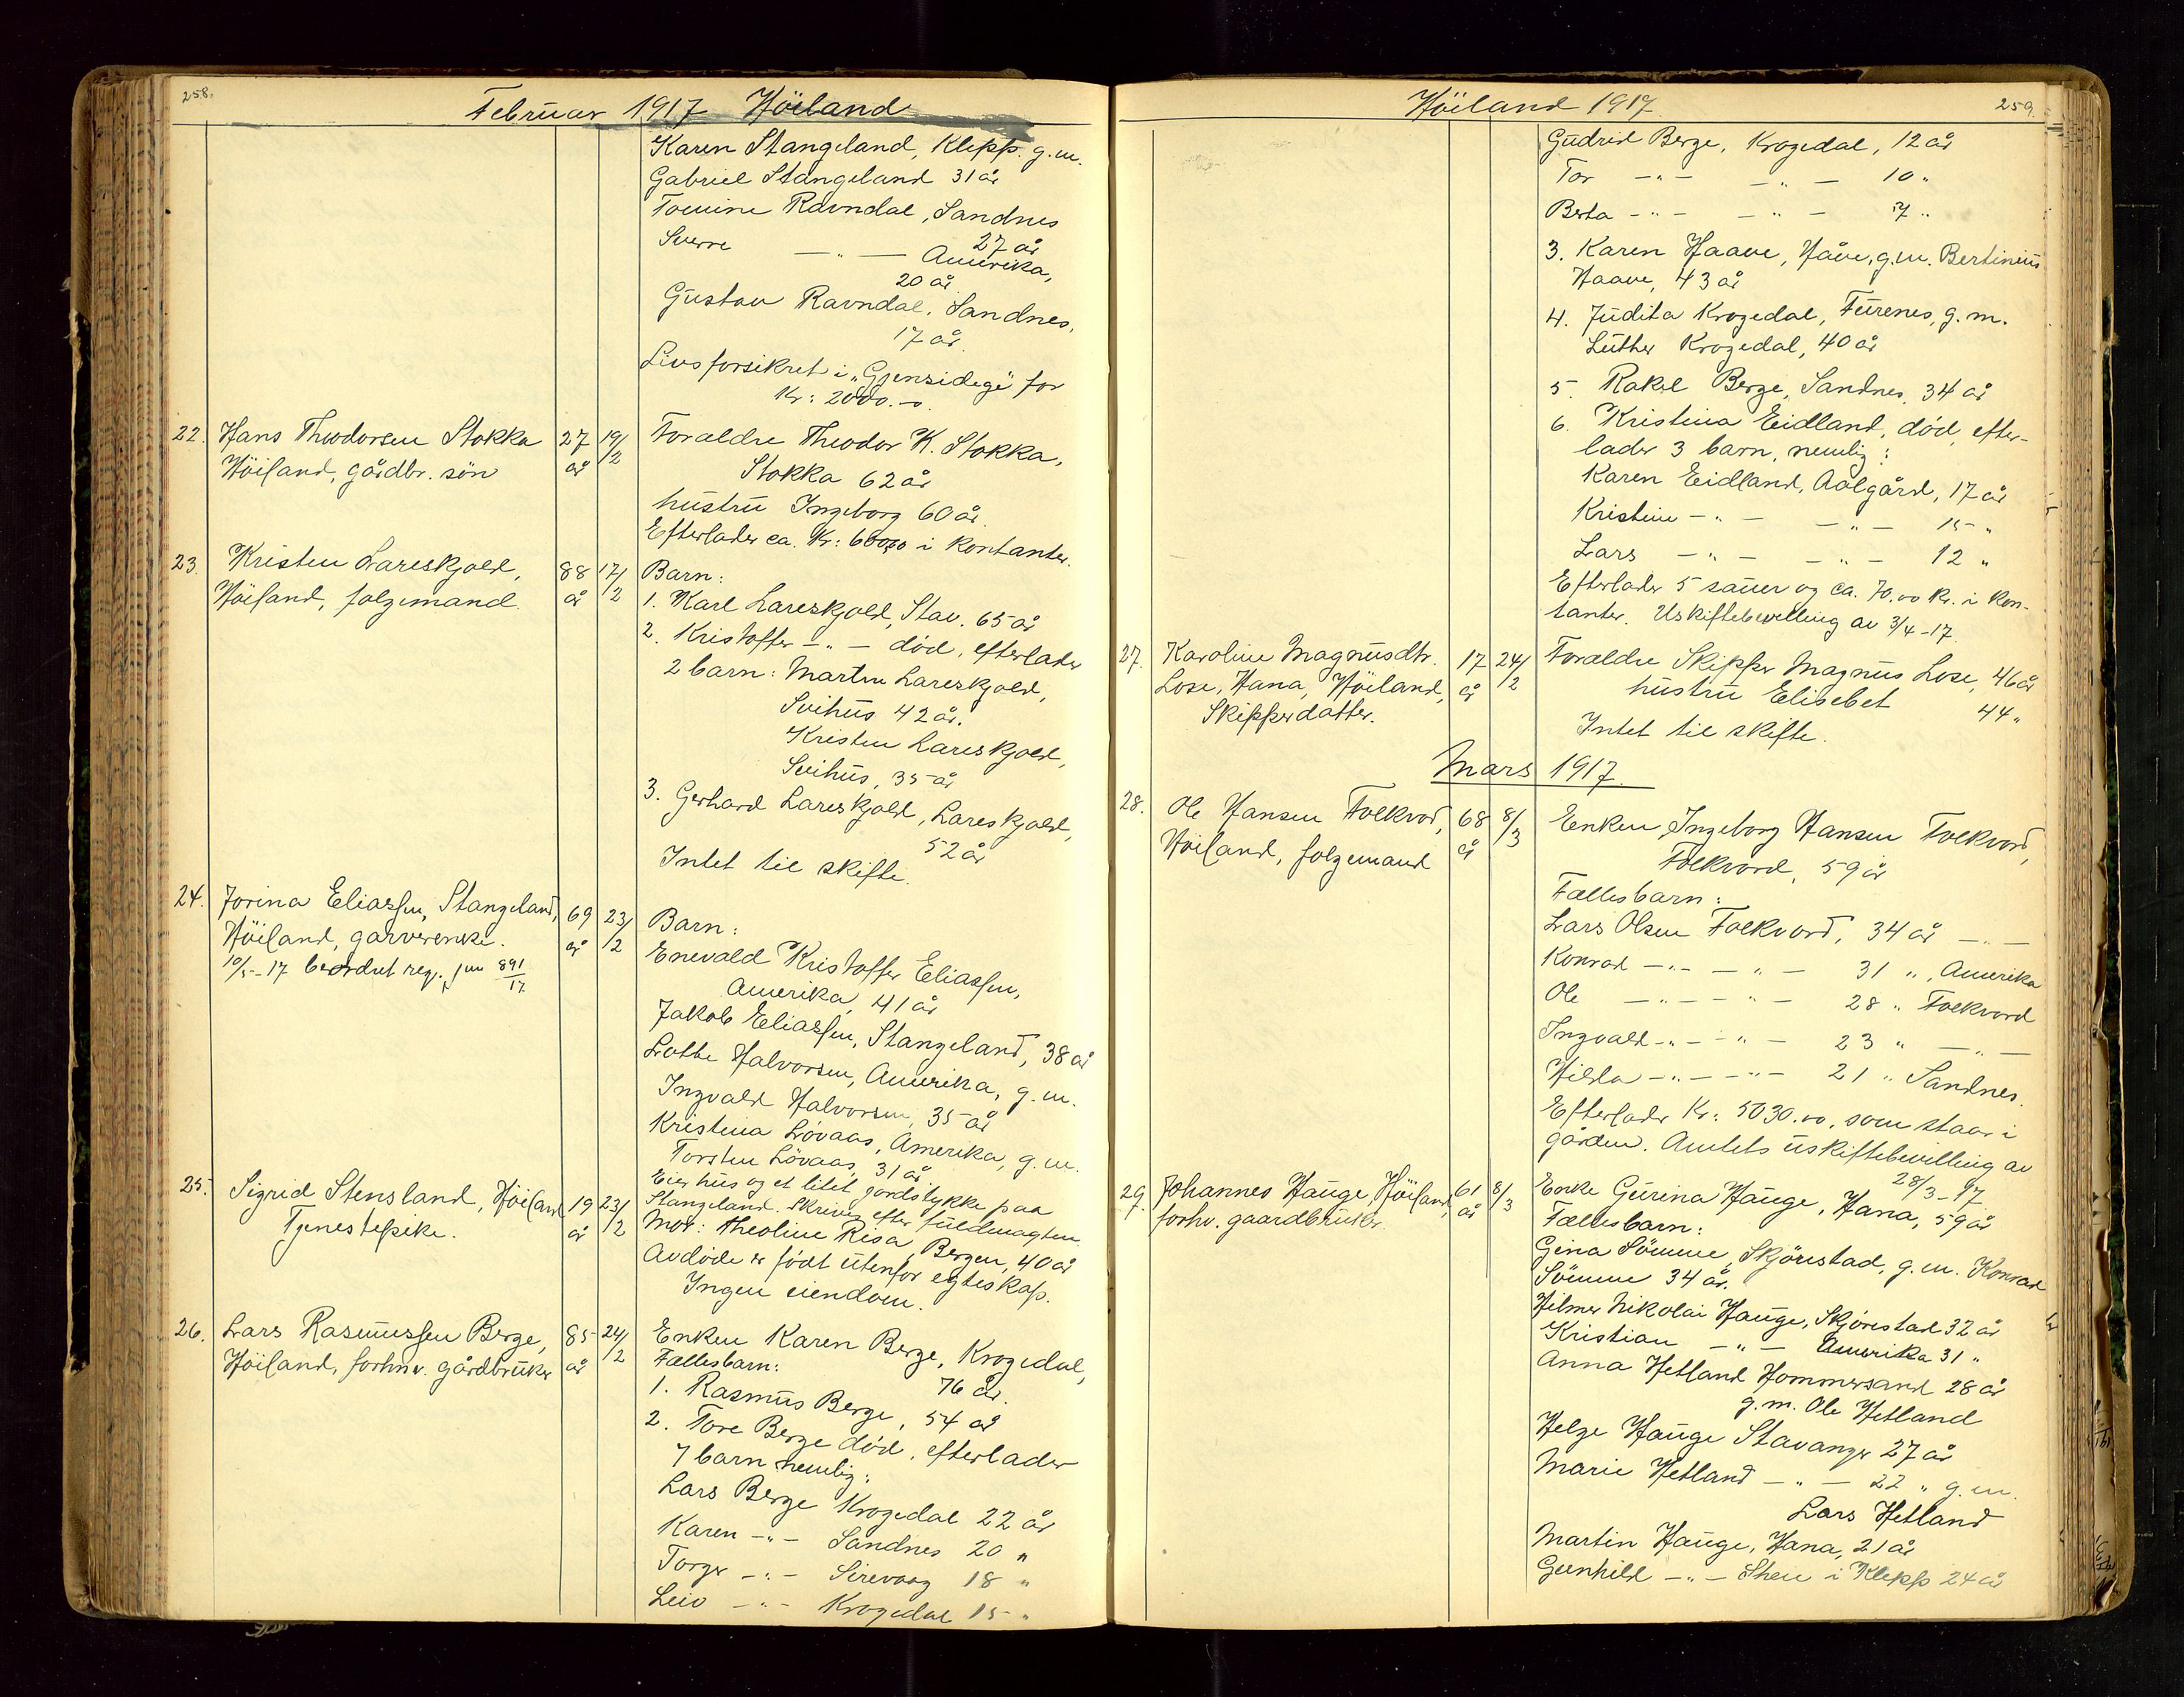 258.
Februar 1917 Höiland
Karen Stangeland, Klepp. g.m.
Gabriel Stangeland 31 år
Tomine Ravndal, Sandnes
27 år
Sverre — " — Amerika,
20 år
Gustav Ravndal, Sandnes,
17 år.
Livsforsikret i „Gjensidige" for
Kr: 2000.-0.
22. Hans Theodorsen Stokka 27 19/2 Forældre Theodor K. Stokka,
Höiland, gårdbr. sön år Stokka 62 år
hustru Ingeborg 60 år.
Efterlader ca. Kr: i kontanter.
23. Kristen Lareskjold, 88 17/2 Barn:
Höiland, folgemand. år 1. Karl Lareskjold, Stav. 65 år
2. Kristoffer — " — död, efterlader
2 barn: Martin Lareskjold,
Svihus 42 år.
Kristen Lareskjold,
Svihus, 35 år
3. Gerhard Lareskjold, Lareskjold,
52 år
Intet til skifte.
24. Jorina Eliassen, Stangeland, 69 23/2 Barn:
Höiland, garverenke. år Enevald Kristoffer Eliassen,
10/5-17 beordret reg. jnr 891/17
Amerika, 41 år
Jakob Eliassen, Stangeland, 38 år
Lotte Halvorsen, Amerika, g.m.
Ingvald Halvorsen, 35 år
Kristina Lövaas, Amerika, g.m.
Torsten Lövaas, 31 år
Eier hus og et litet jordstykke paa
Stangeland. Skrives efter fuldmagten
25. Sigrid Stensland, Höiland 19 23/2 Mor: Theoline Risa, Bergen, 40 år
Tjenestepike. år Avdöde er födt utenfor egteskap.
Ingen eiendom.
26. Lars Rasmussen Berge, 85 24/2 Enken Karen Berge, Krogedal,
Höiland, forhnv. gårdbruker år Fællesbarn: 76 år.
1. Rasmus Berge, 54 år
2. Tore Berge död, efterlader
7 barn nemlig:
Lars Berge Krogedal 22 år
Karen — " — Sandnes 20 "
Torger — " — Sirevaag 18 "
Leiv — " — Krogedal 15 "
Höiland 1917. 259.
Gudrid Berge, Krogedal, 12 år
Tor — " — — " — 10 "
Berta — " — — " — 7 "
3. Karen Haave, Håve, g.m. Bertinius
Haave, 43 år
4. Judita Krogedal, Furenes, g.m.
Luther Krogedal, 40 år
5. Rakel Berge, Sandnes, 34 år
6. Kristina Eidland, död, efter-
lader 3 barn, nemlig:
Karen Eidland, Aalgård, 17 år
Kristine — " — — " — 15 "
Lars — " — — " — 12 "
Efterlader 5 sauer og ca. 70.00 kr. i kon-
tanter. Uskiftebevilling av 3/4-17.
27. Karoline Magnusdtr. 17 24/2 Forældre Skipper Magnus Lose, 46 år
Lose, Hana, Höiland, år hustru Elisebet 44 "
Skipperdatter.
Intet til skifte.
Mars 1917.
28. Ole Hansen Folkvord, 68 8/3 Enken Ingeborg Hansen Folkvord,
Höiland, folgemand år Folkvord, 59 år
Fællesbarn:
Lars Olsen Folkvord, 34 år — " —
Konrad — " — — " — 31 ", Amerika
Ole — " — — " — 28 " Folkvord
Ingvald — " — — " — 23 " — " —
Hilda — " — — " — 21 " Sandnes.
Efterlader Kr: 5030.00, som staar i
gården. Amtets uskiftebevilling av
28/3-17
29. Johannes Hauge, Höiland, 61 8/3 Enke Gurina Hauge, Hana, 59 år
forhv. gaardbruker. år Fællesbarn:
Gina Sömme, Skjörestad, g.m. Konrad
Sömme 34 år.
Hilmer Nikolai Hauge, Skjörestad 32 år
Kristian — " — Amerika 31 "
Anna Hetland Hommersand 28 år
g.m. Ole Hetland
Helge Hauge Stavanger 27 år
Marie Hetland — " — 22 " g.m.
Lars Hetland
Martin Hauge, Hana, 21 år
Gunhild — " — i Klepp 24 år